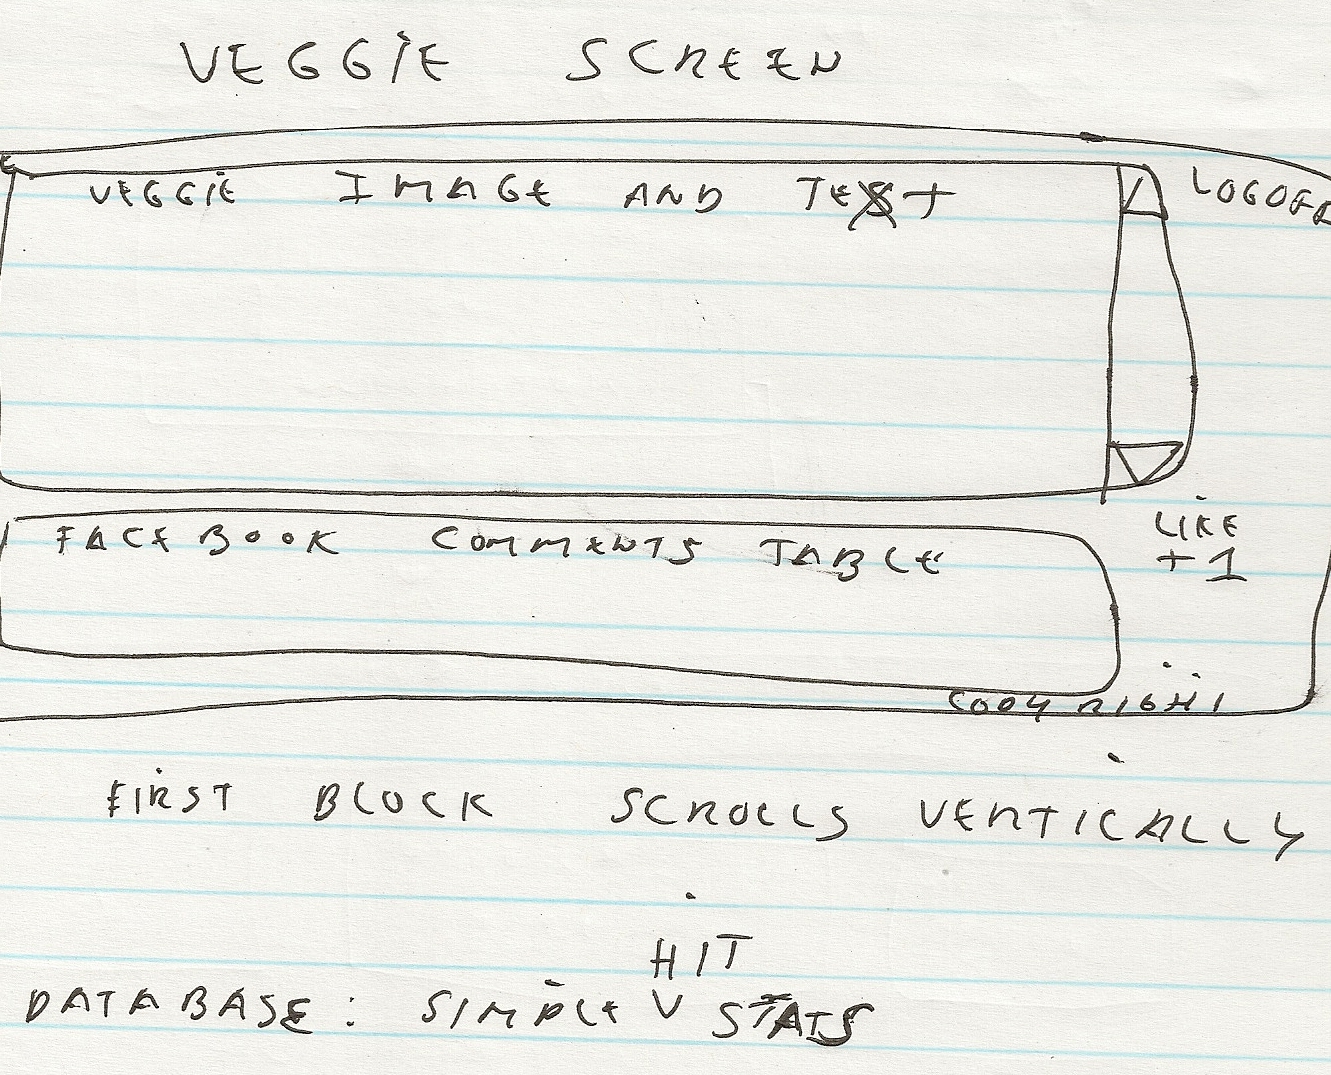 VEGGIE SCREEN
VEGGIE IMAGE AND TEXT
LOGOFF
FACEBOOK COMMENTS TABLE
LIKE
+1
COPYRIGHT
FIRST BLOCK SCROLLS VERTICALLY
HIT
DATABASE: SIMPLE V STATS